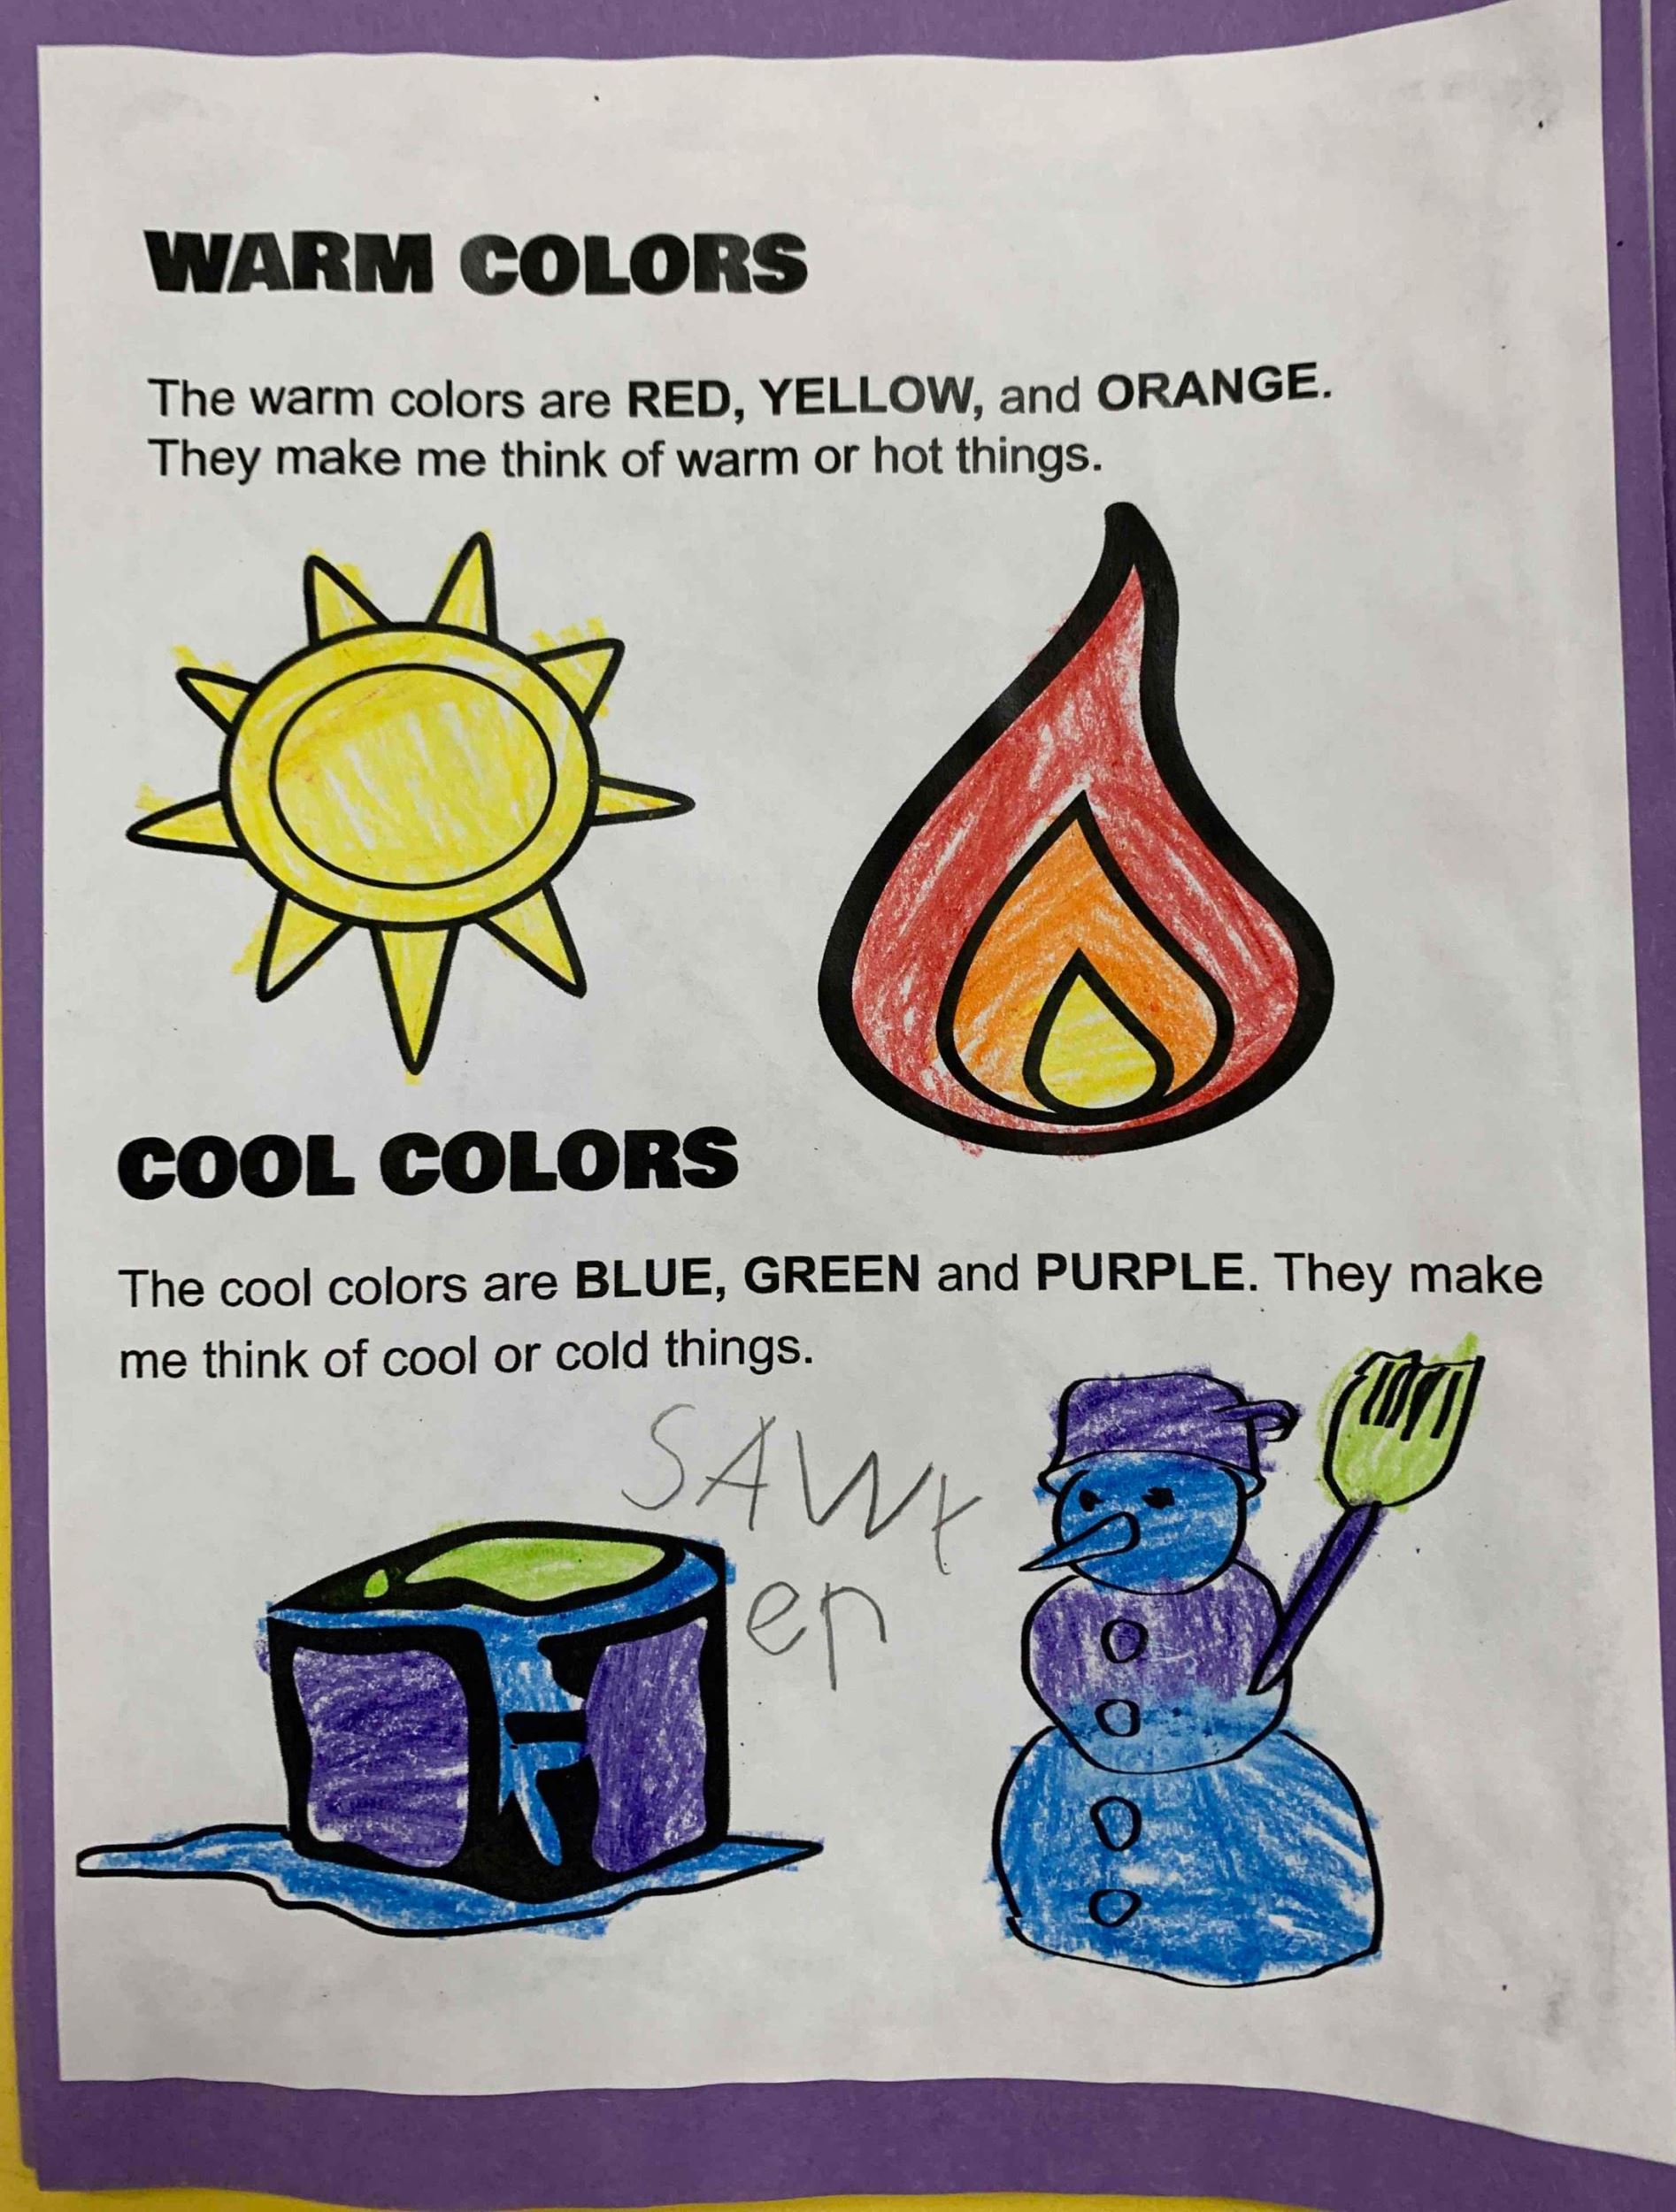 WARM COLORS
The warm colors are RED, YELLOW, and ORANGE.
They make me think of warm or hot things.
COOL COLORS
The cool colors are BLUE, GREEN and PURPLE. They make
me think of cool or cold things.
SAWY
er